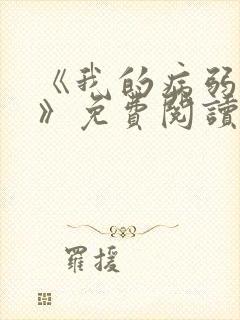 《我的病弱
》免費閱讀
羅援